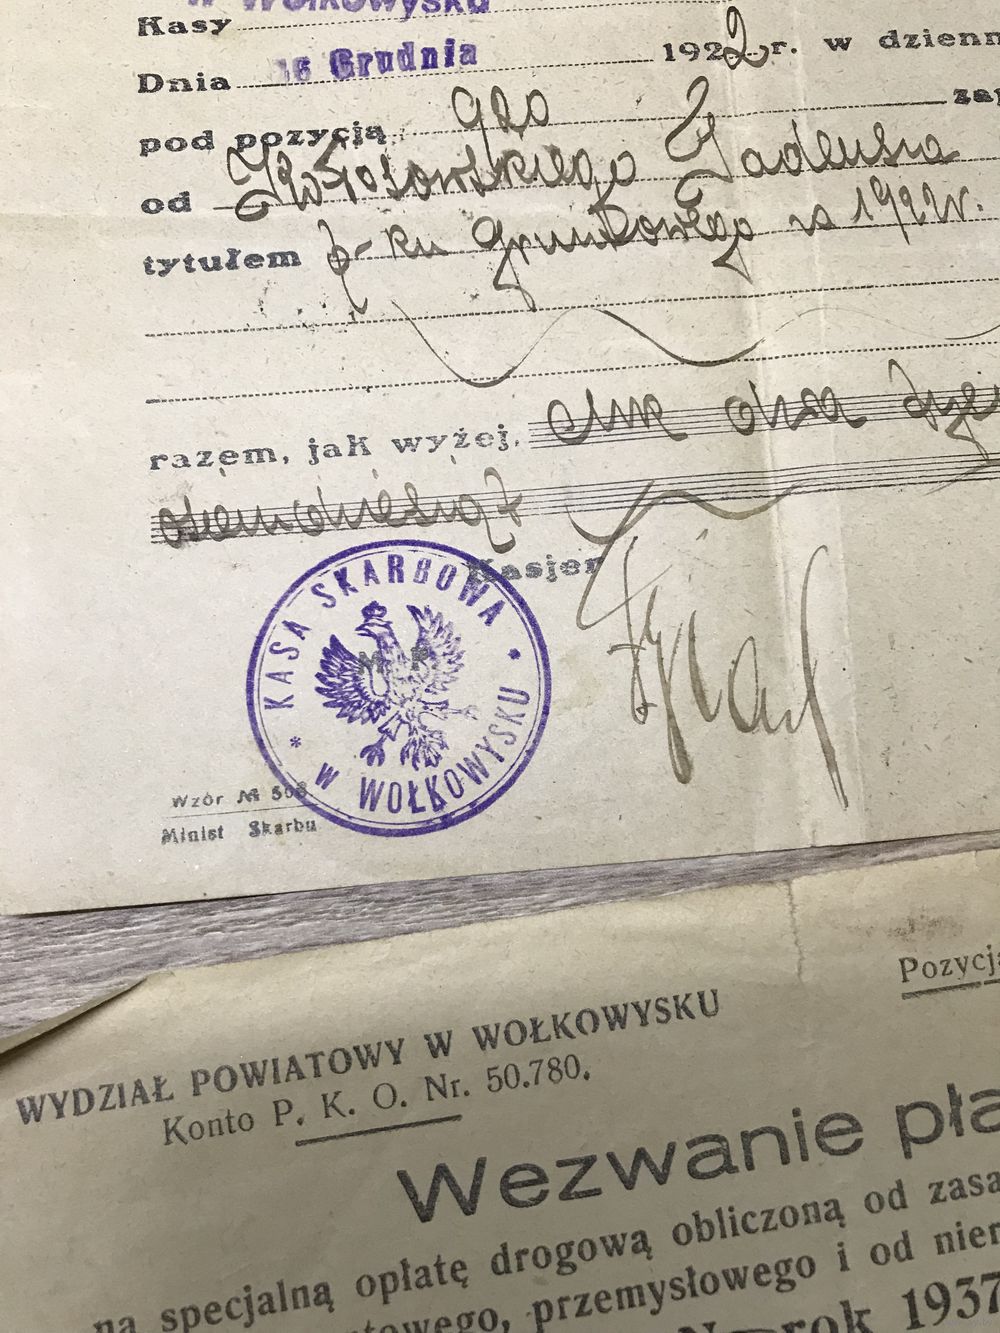 w Wołkowysku
Kasy
Dnia 16 Grudnia 1922 r. w dzienn
pod pozycją 920 zap
od Tadeusza
tytułem p-ku gruntowego za 1922 r.
razem, jak wyżej, dwa
osiemdziesiąt
Kasjer
KASA SKARBOWA
* w WOŁKOWYSKU *
M P
Wzór № 508
Minist Skarbu
Pozycja
WYDZIAŁ POWIATOWY W WOŁKOWYSKU
Konto P. K. O. Nr. 50.780.
Wezwanie pła
na specjalną opłatę drogową obliczoną od zasa
towego, przemysłowego i od nier
N rok 1937